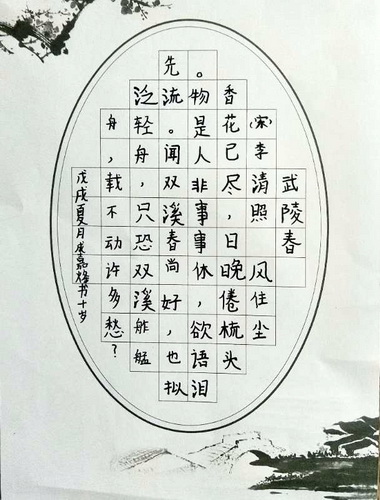 武陵春
(宋)李清照 风住尘
香花已尽,日晚倦梳头
。物是人非事事休,欲语泪
先流。闻双溪春尚好,也拟
泛轻舟,只恐双溪舴艋
舟,载不动许多愁?
戊戌夏月嘉书十岁